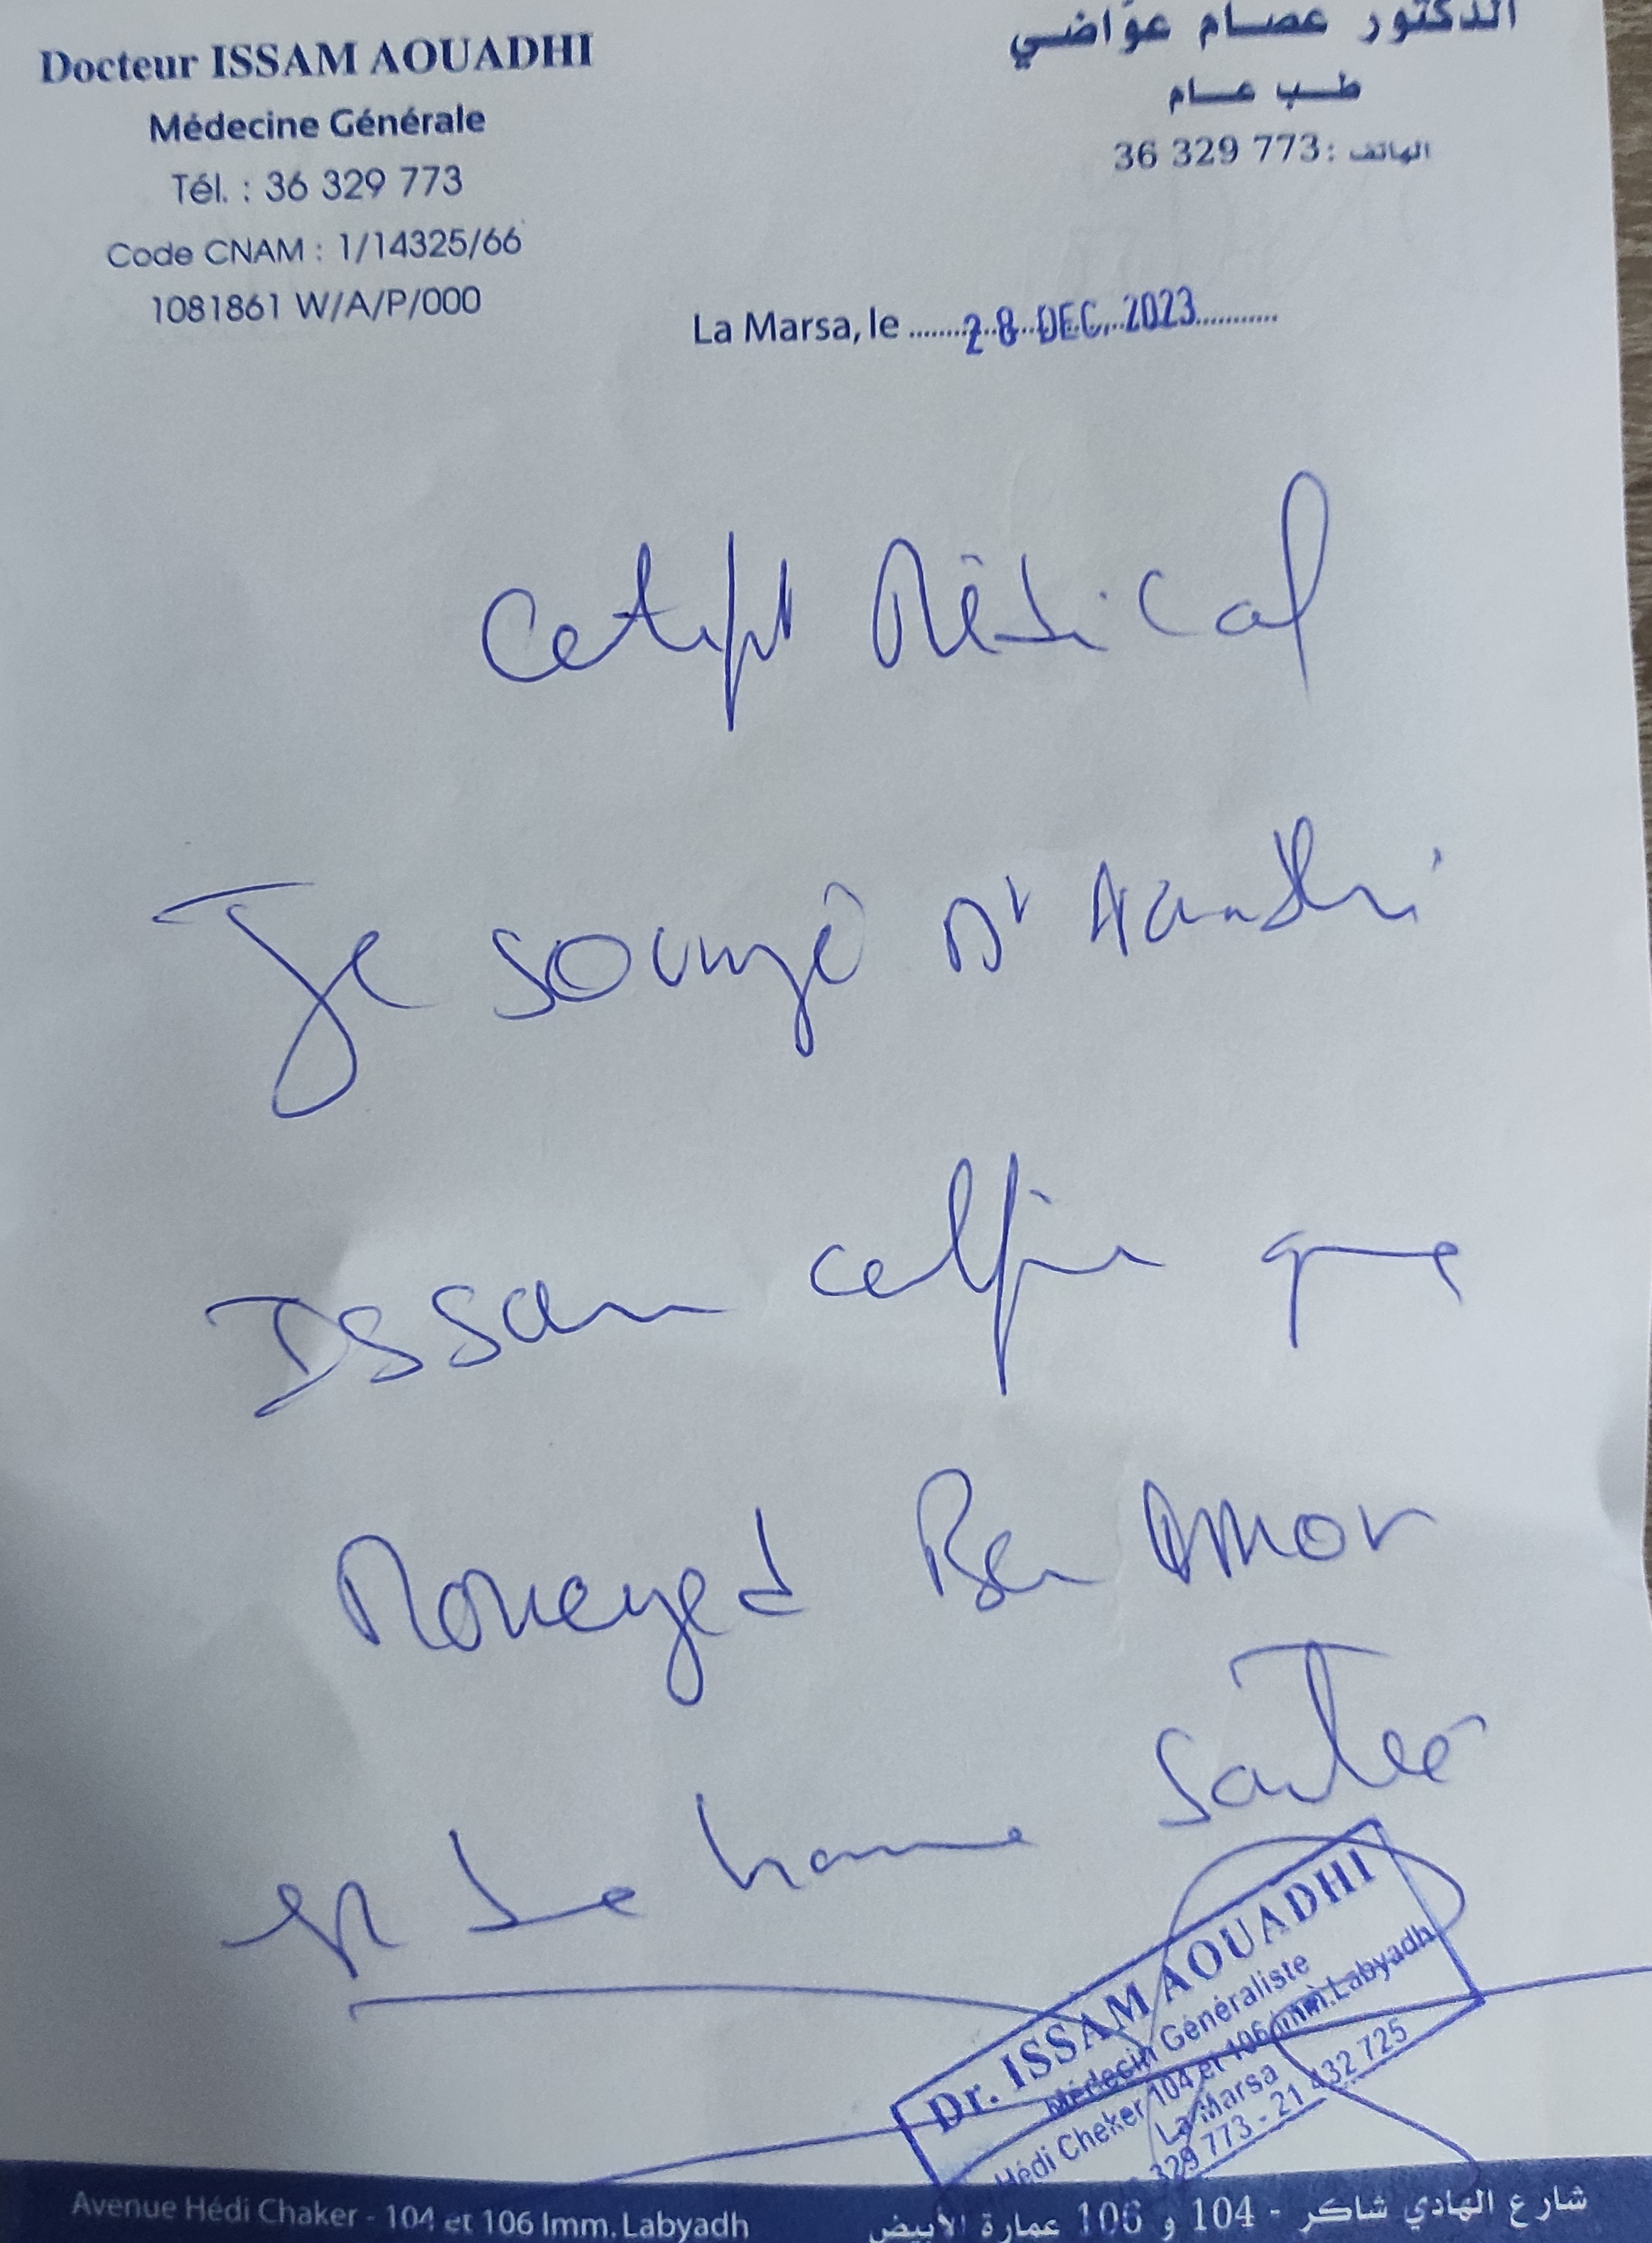 Docteur ISSAM AOUADHI
Médecine Générale
Tél. : 36 329 773
Code CNAM : 1/14325/66
1081861 W/A/P/000
الدكتور عصام عوّاضي
طب عام
الهاتف : 36 329 773
La Marsa, le 28 DEC. 2023
Certificat Médical
Je soussigné Dr Aouadhi
Issam certifie que
Moueyed Ben Amor
est de bonne santé
Dr. ISSAM AOUADHI
Médecin Généraliste
Hédi Cheker 104 et 106 Imm. Labyadh
La Marsa
329 773 - 21 432 725
Avenue Hédi Chaker - 104 et 106 Imm. Labyadh
شارع الهادي شاكر - 104 و 106 عمارة الأبيض